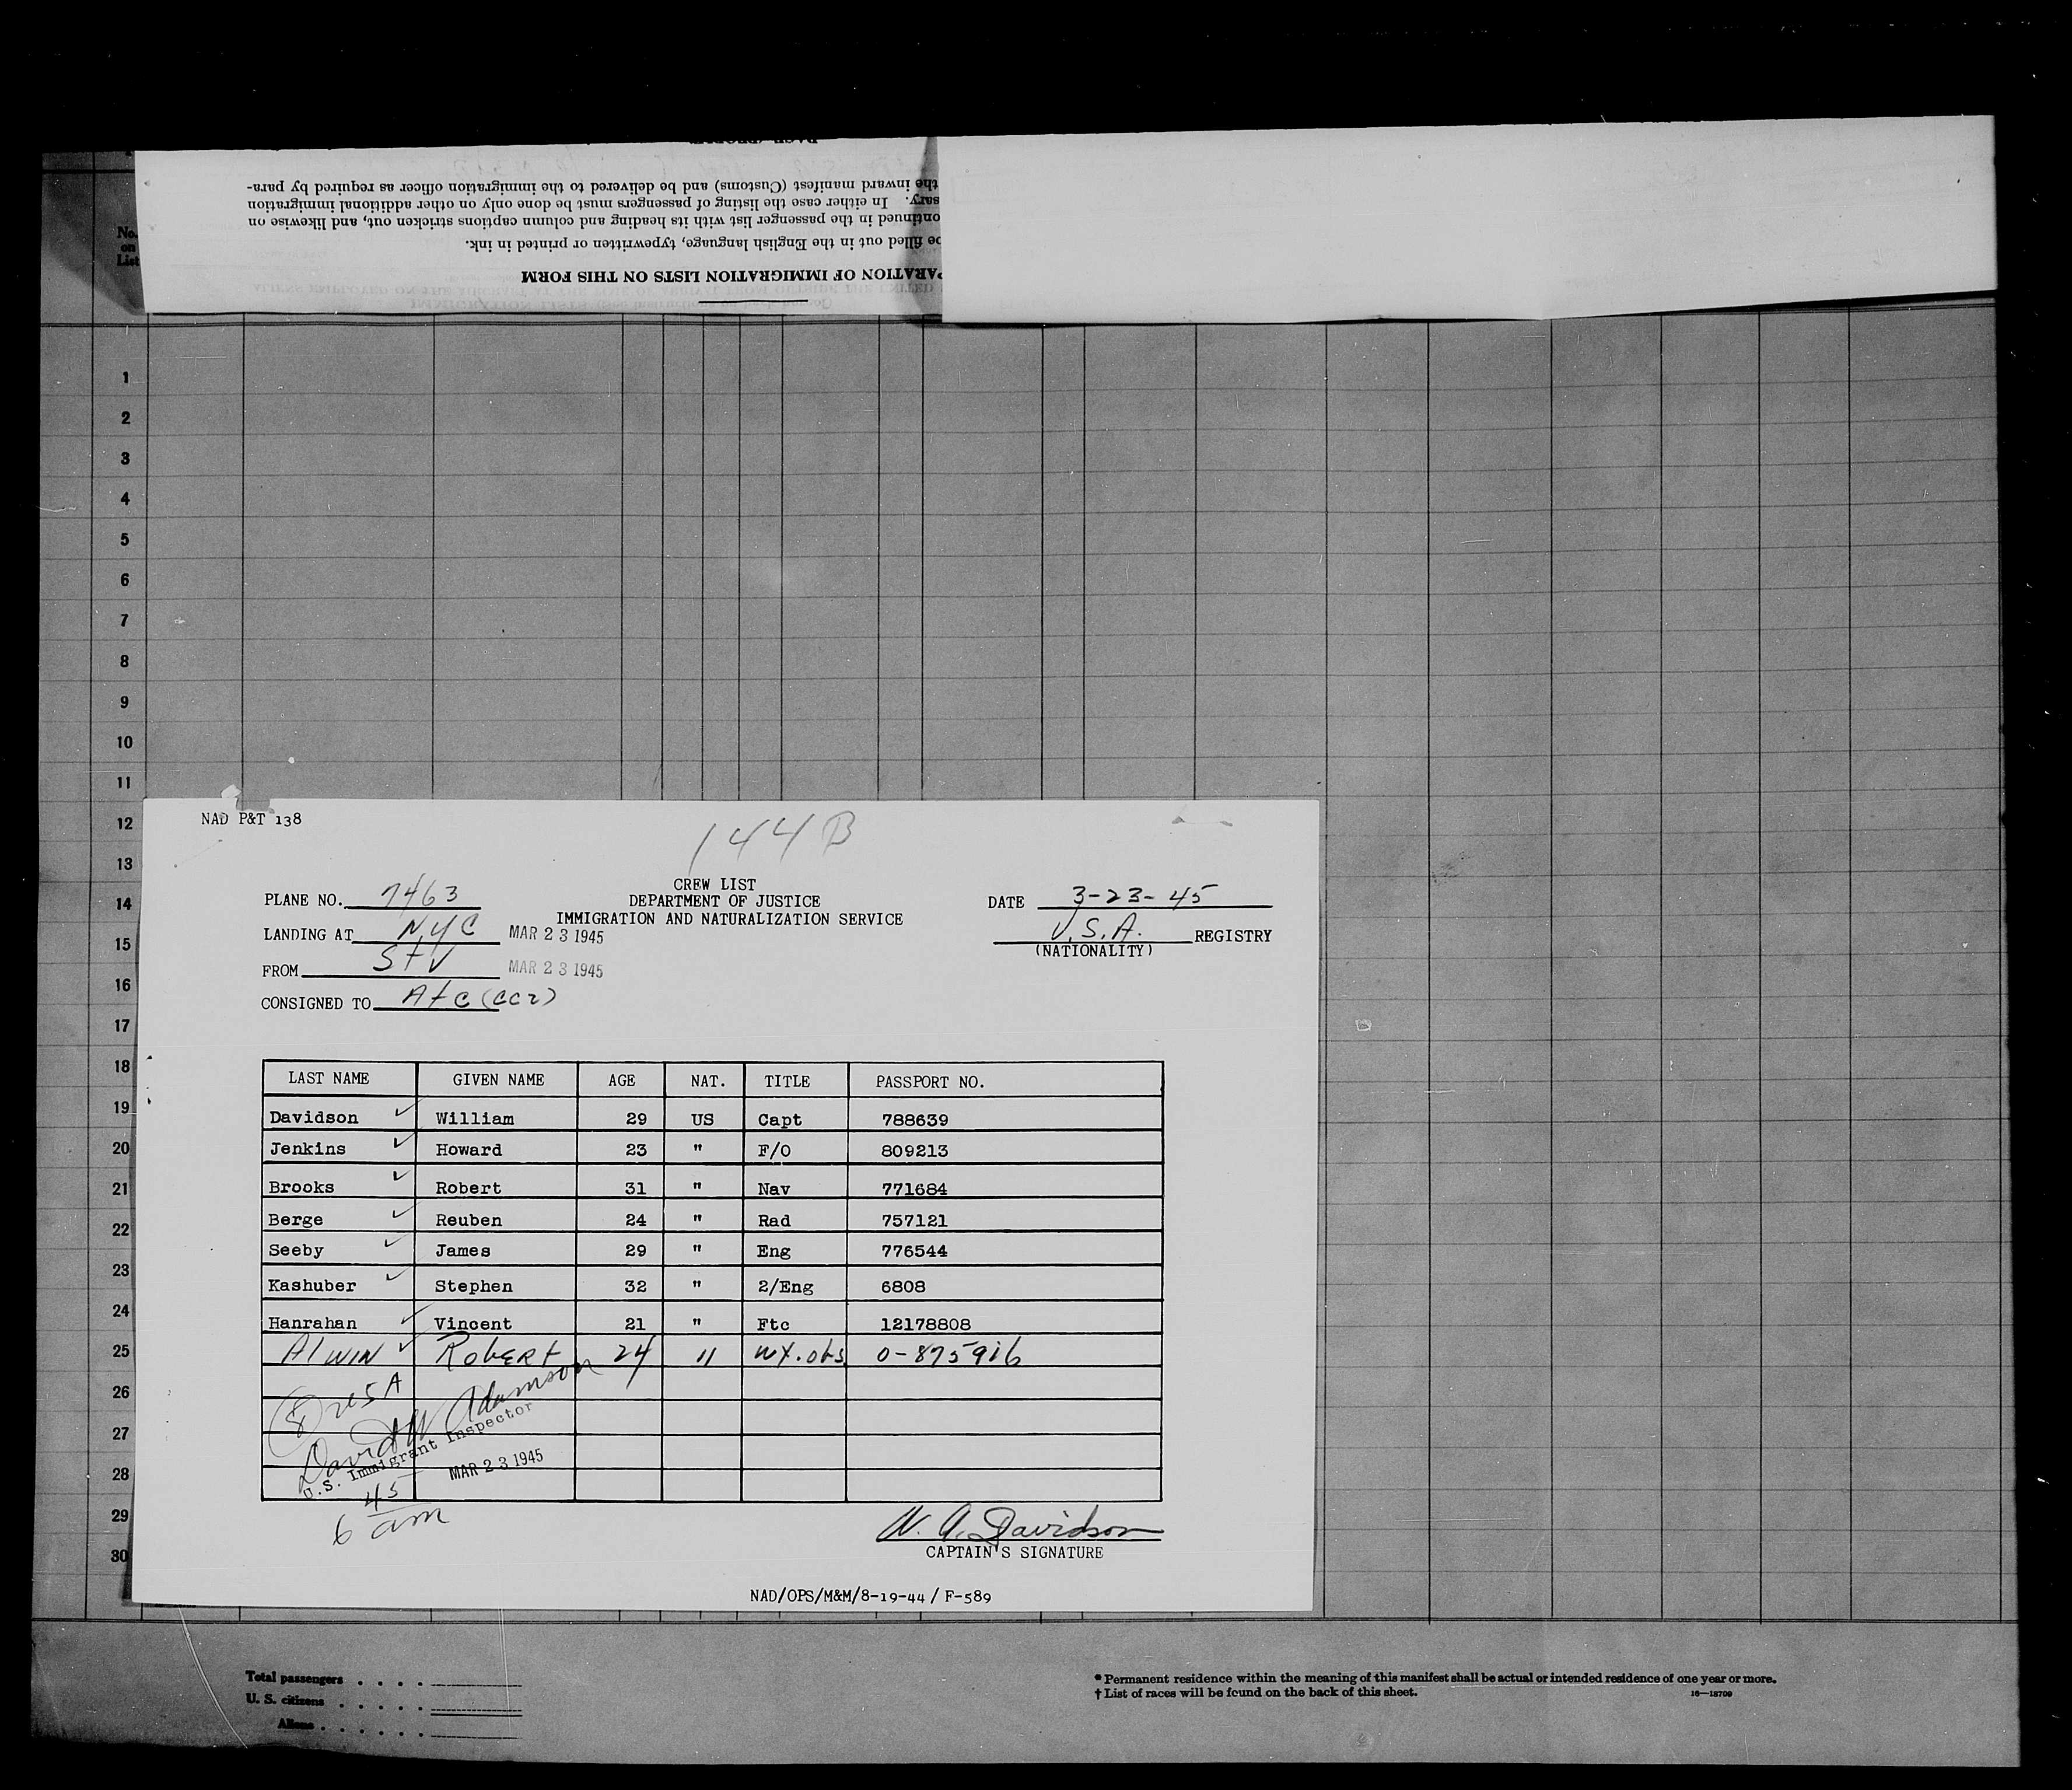 the inward manifest (Customs) and be delivered to the immigration officer as required by para-
sary. In either case the listing of passengers must be done only on other additional immigration
ontinued in the passenger list with its heading and column captions stricken out, and likewise on
be filled out in the English language, typewritten or printed in ink.
PARATION OF IMMIGRATION LISTS ON THIS FORM
No.
on
List
1
2
3
4
5
6
7
8
9
10
11
12
13
14
15
16
17
18
19
20
21
22
23
24
25
26
27
28
29
30
NAD P&T 138
144 B
CREW LIST
DEPARTMENT OF JUSTICE
IMMIGRATION AND NATURALIZATION SERVICE
PLANE NO. 7463
DATE 3-23-45
LANDING AT NYC MAR 23 1945
U.S.A. REGISTRY
(NATIONALITY)
FROM STV MAR 23 1945
CONSIGNED TO AtC (CC2)
LAST NAME GIVEN NAME AGE NAT. TITLE PASSPORT NO.
Davidson William 29 US Capt 788639
Jenkins Howard 23 " F/O 809213
Brooks Robert 31 " Nav 771684
Berge Reuben 24 " Rad 757121
Seeby James 29 " Eng 776544
Kashuber Stephen 32 " 2/Eng 6808
Hanrahan Vincent 21 " Ftc 12178808
AlWIN RobERt 24 " WX.obs O-875916
8 USA
David W Adamson
U.S. Immigrant Inspector
MAR 23 1945
45
6 am
W. A. Davidson
CAPTAIN'S SIGNATURE
NAD/OPS/M&M/8-19-44 / F-589
Total passengers . . . .
U. S. citizens . . . . .
Aliens . . . . . .
* Permanent residence within the meaning of this manifest shall be actual or intended residence of one year or more.
† List of races will be found on the back of this sheet.
16—18709